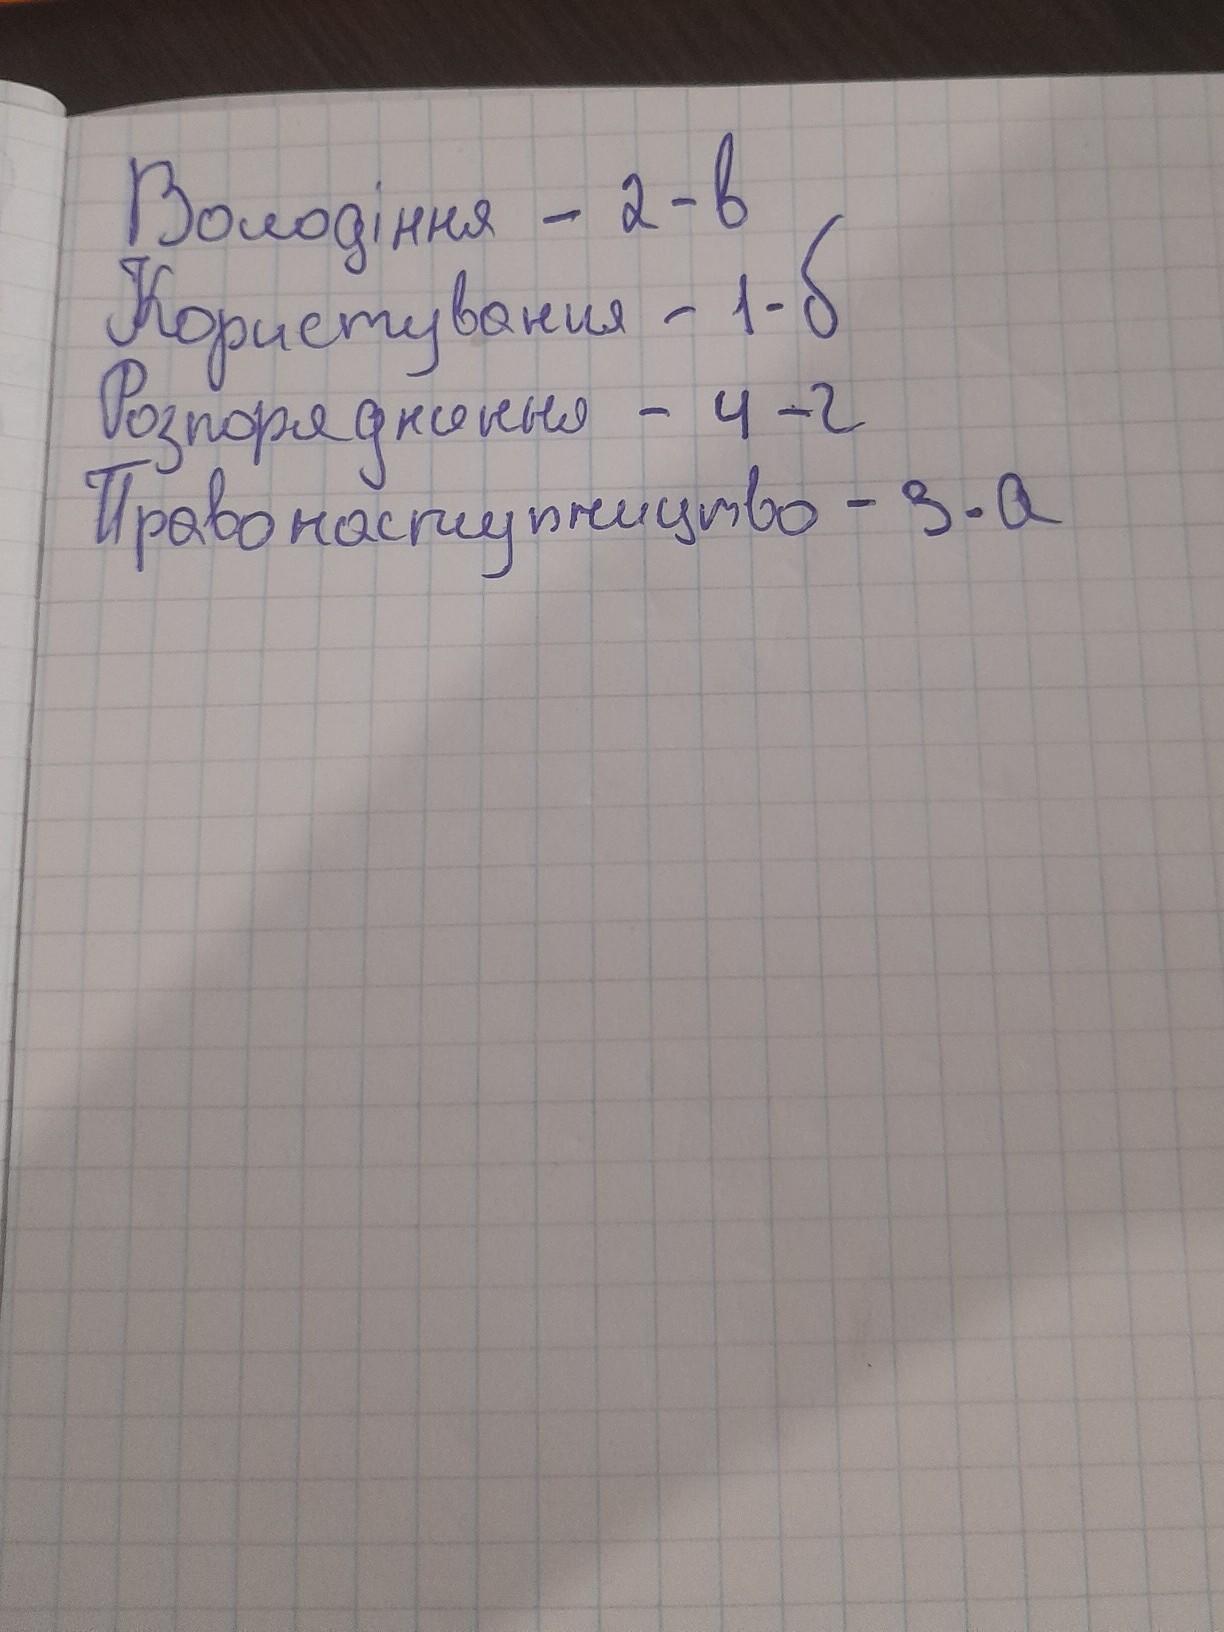 Володіння - 2-в
Користування - 1-б
Розпорядження - 4-г
Правонаступництво - 3-а